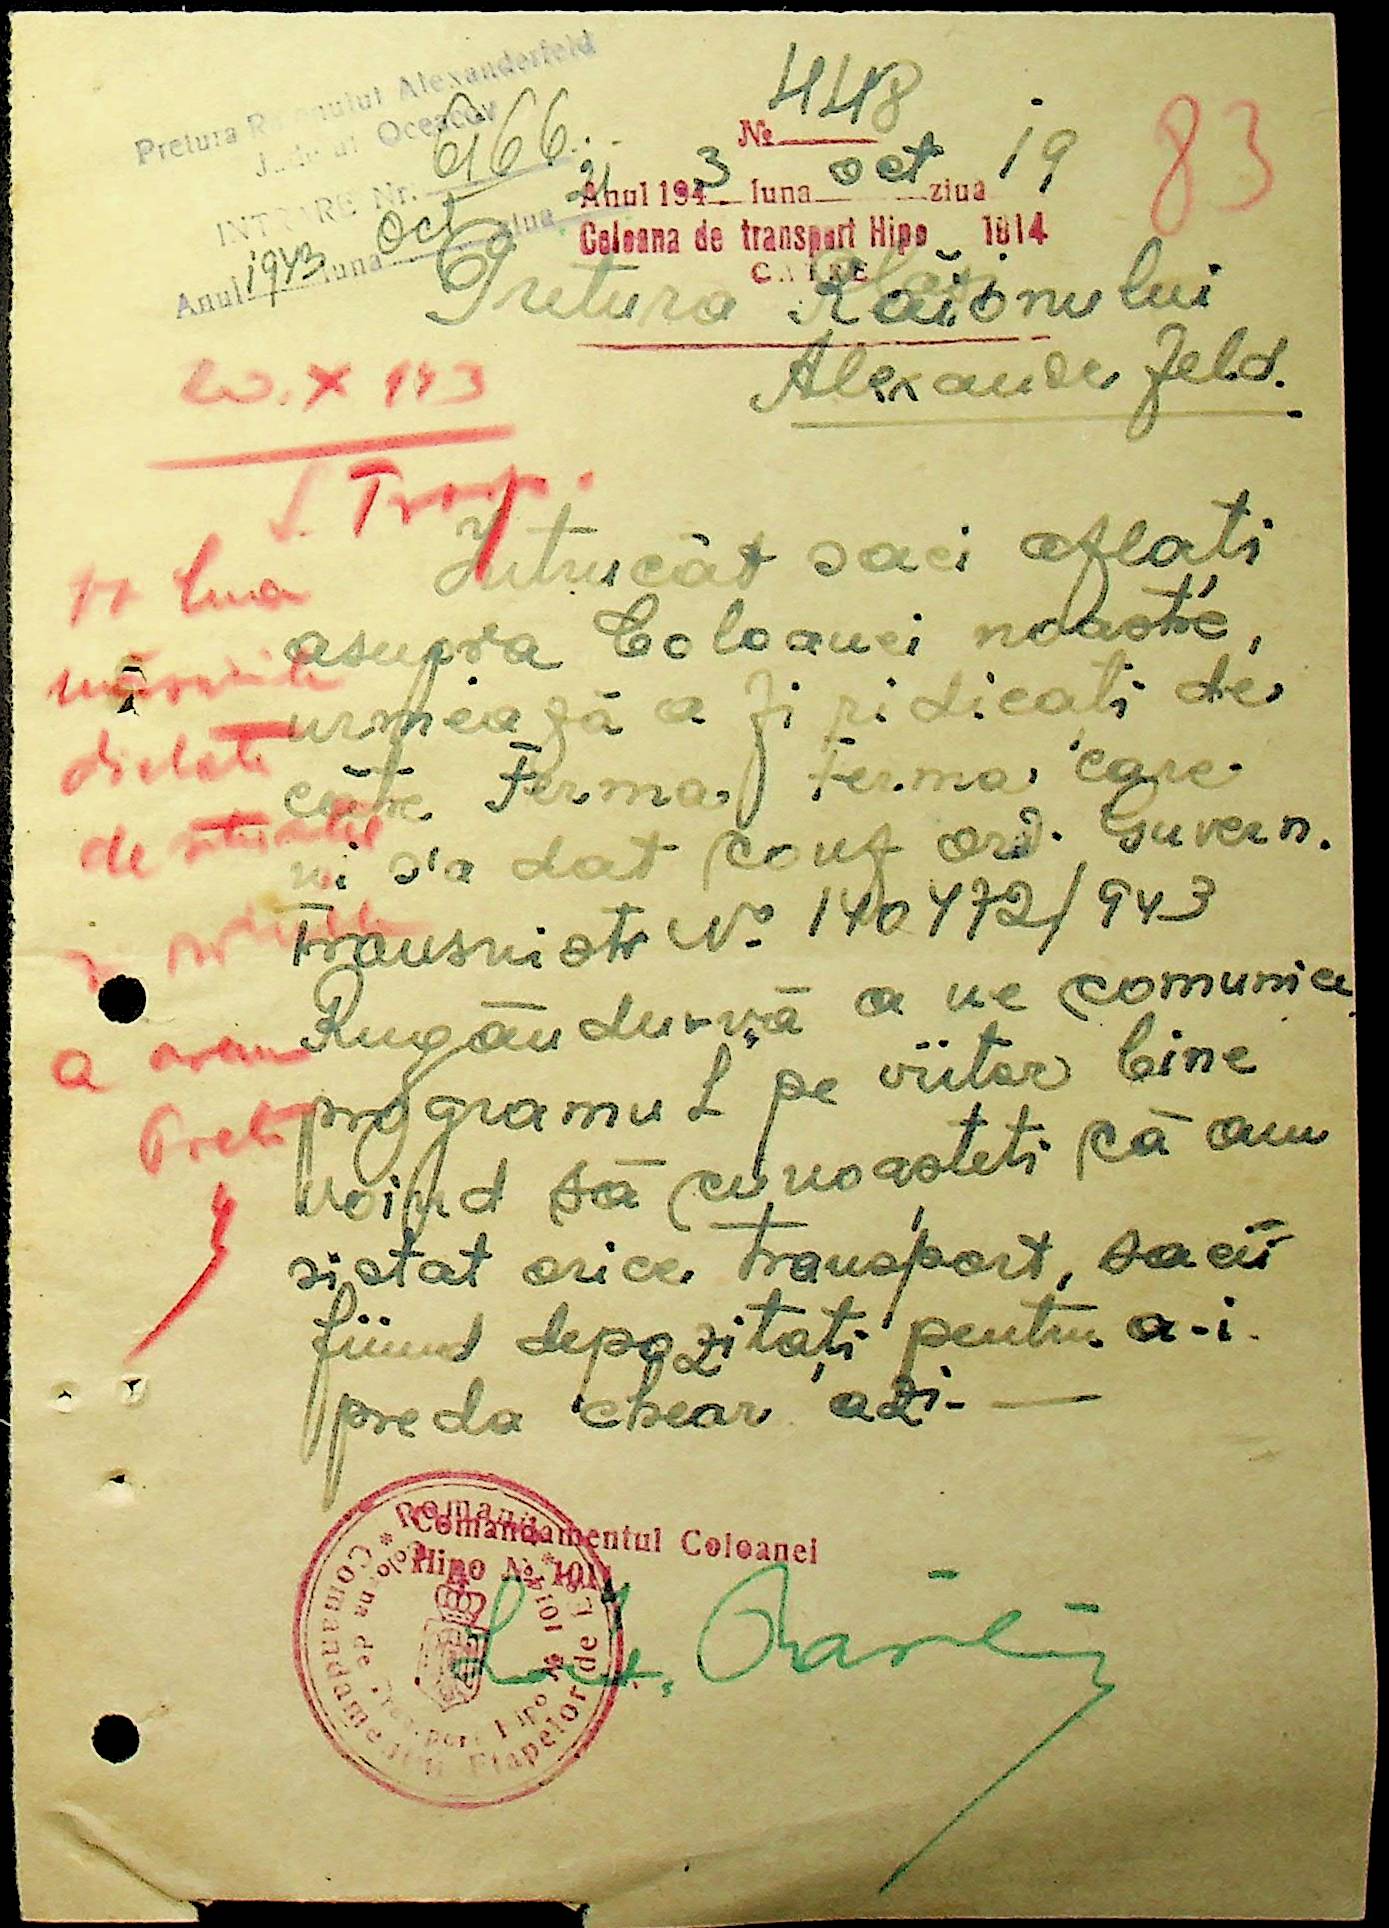 Pretura Raionului Alexanderfeld
Județul Oceacov
INTRARE Nr. 6166
Anul 1943 luna Oct ziua 21
№ 448
Anul 1943 luna oct ziua 19
Coloana de transport Hipo 1014
CĂTRE
83
Pretura Raionului
Alexanderfeld.
20.X 943
Întrucât saci aflati
asupra Coloanei noastre,
urmează a fi ridicati de
către Ferma, ferma care
ni s'a dat conf ord. Guvern.
Transnistr No. 140472/943
Rugându-vă a ne comunica
programul pe viitor bine
voind să cunoasteti că am
sistat orice transport, sacii
fiind depozitați pentru a-i
preda chear azi.—
luna
măsurile
dictate
de
a
Pret
Comandamentul Coloanei
Hipo № 1014
Romania * Comandamentul Etapelor de Est *
Coloana de Transport Hipo № 1014